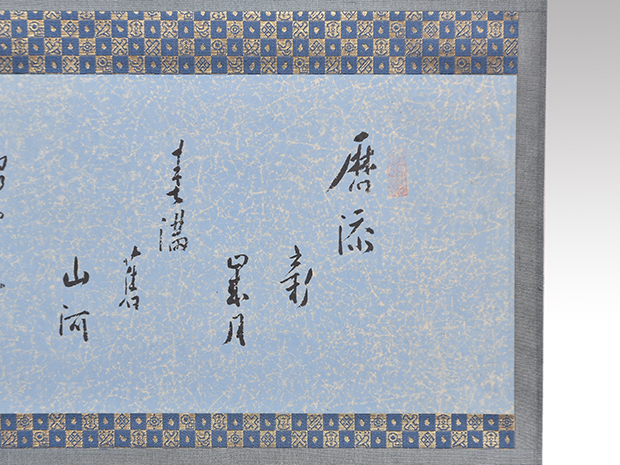 暦添
新
歳月
春満
舊
山河